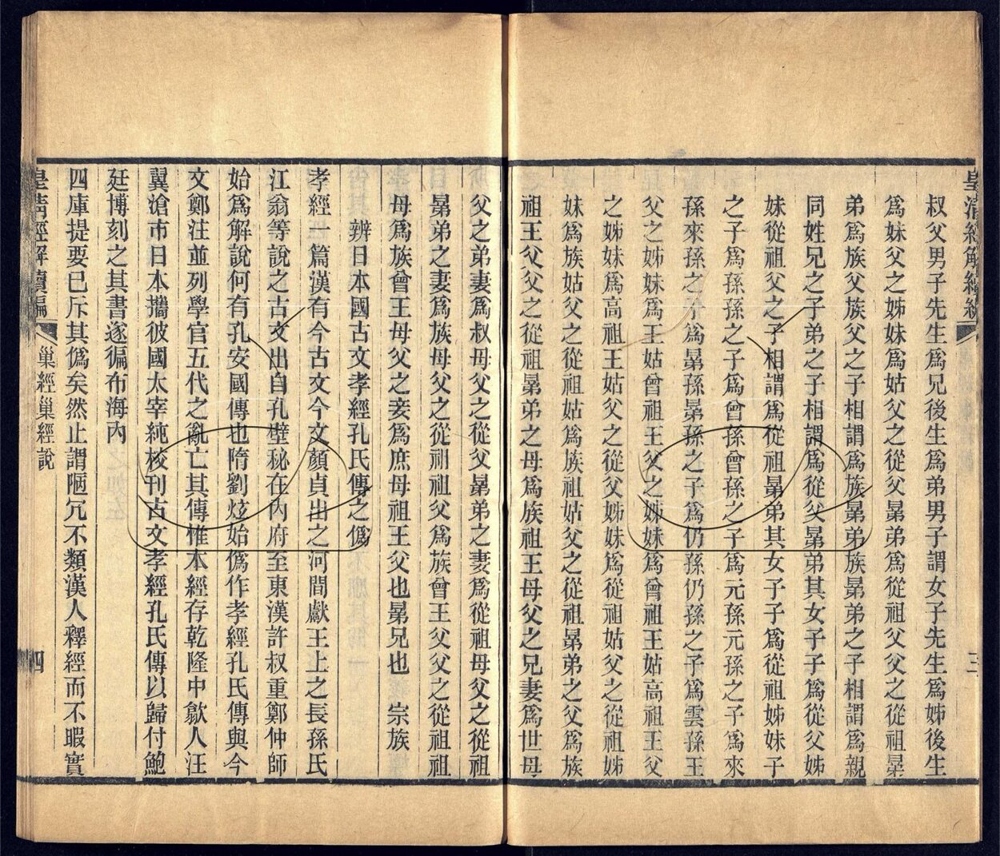 皇清經解續編
三
叔父男子先生爲兄後生爲弟男子謂女子先生爲姊後生
爲妹父之姊妹爲姑父之從父晜弟爲從祖父父之從祖晜
弟爲族父族父之子相謂爲族晜弟族晜弟之子相謂爲親
同姓兄之子弟之子相謂爲從父晜弟其女子子爲從父姊
妹從祖父之子相謂爲從祖晜弟其女子子爲從祖姊妹子
之子爲孫孫之子爲曾孫曾孫之子爲元孫元孫之子爲來
孫來孫之子爲晜孫晜孫之子爲仍孫仍孫之子爲雲孫王
父之姊妹爲王姑曾祖王父之姊妹爲曾祖王姑高祖王父
之姊妹爲高祖王姑父之從父姊妹爲從祖姑父之從祖姊
妹爲族姑父之從祖姑爲族祖姑父之從祖晜弟之父爲族
祖王父父之從祖晜弟之母爲族祖王母父之兄妻爲世母
父之弟妻爲叔母父之從父晜弟之妻爲從祖母父之從祖
晜弟之妻爲族母父之從祖祖父爲族曾王父父之從祖祖
母爲族曾王母父之妾爲庶母祖王父也晜兄也 宗族
辨日本國古文孝經孔氏傳之僞
孝經一篇漢有今古文今文顏貞出之河間獻王上之長孫氏
江翁等說之古文出自孔壁秘在內府至東漢許叔重鄭仲師
始爲解說何有孔安國傳也隋劉炫始僞作孝經孔氏傳與今
文鄭注並列學官五代之亂亡其傳惟本經存乾隆中歙人汪
翼滄市日本攜彼國太宰純校刊古文孝經孔氏傳以歸付鮑
廷博刻之其書遂徧布海內
四庫提要已斥其僞矣然止謂陋冗不類漢人釋經而不暇實
皇清經解續編
巢經巢經說
四